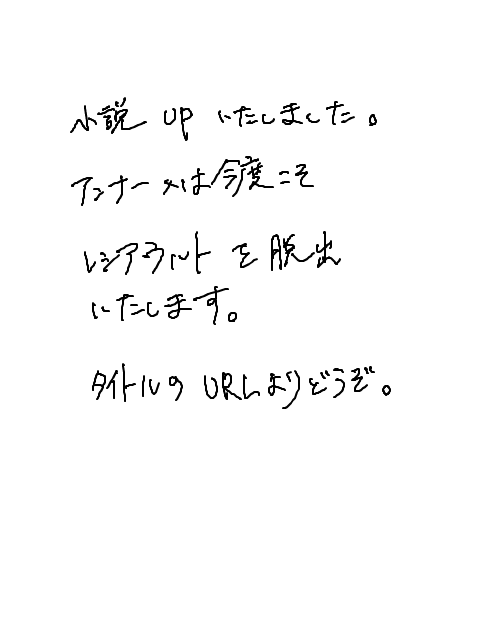 小説 UP いたしました。
アンナーメは今度こそ
レジアウルトを脱出
いたします。
タイトルの URLよりどうぞ。